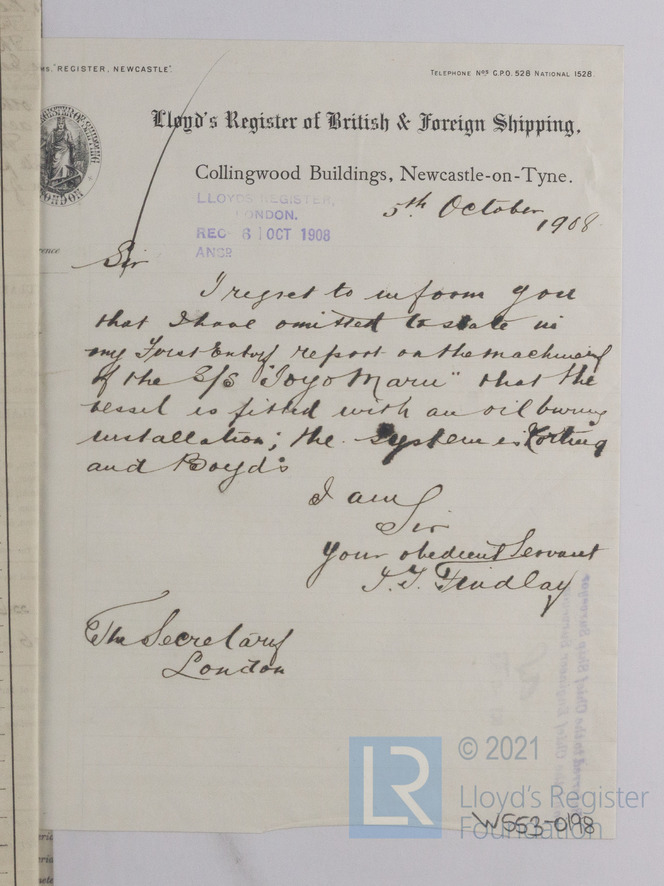 MS. "REGISTER, NEWCASTLE".
TELEPHONE Nos G.P.O. 528 NATIONAL 1528.
Lloyd's Register of British & Foreign Shipping,
Collingwood Buildings, Newcastle-on-Tyne.
LLOYDS REGISTER,
LONDON.
REC 6 OCT 1908
ANSD
5th October
1908
Sir
I regret to inform you
that I have omitted to state in
my First Entry report on the machinery
of the S/S "Toyo Maru" that the
vessel is fitted with an oil burning
installation; the system is Korting
and Boyd's
I am
Sir
Your obedient Servant
J. T. Findlay
The Secretary
London
LR
© 2021
Lloyd's Register
Foundation
W553-0198